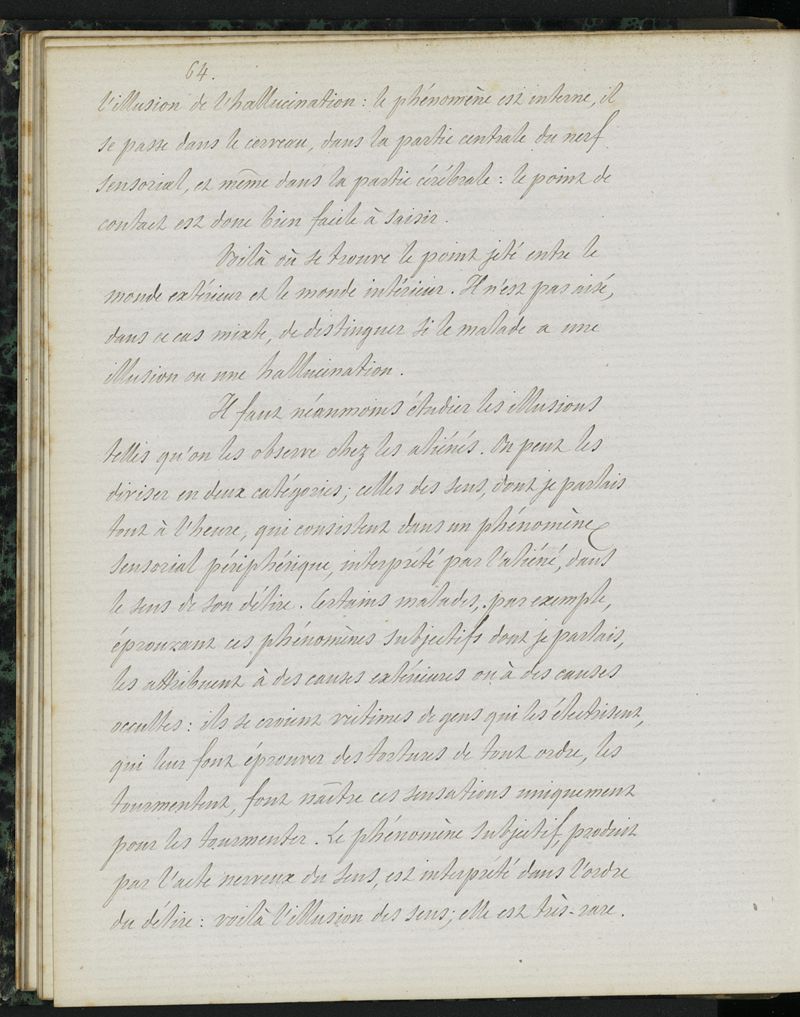 64.
l'illusion de l'hallucination : le phénomène est interne, il
se passe dans le cerveau, dans la partie centrale du nerf
sensorial, et même dans la partie cérébrale : le point de
contact est donc bien facile à saisir.
Voilà où se trouve le point jeté entre le
monde extérieur et le monde intérieur. Il n'est pas aisé,
dans ce cas mixte, de distinguer si le malade a une
illusion ou une hallucination.
Il faut néanmoins étudier les illusions
telles qu'on les observe chez les aliénés. On peut les
diviser en deux catégories ; celles des sens, dont je parlais
tout à l'heure, qui consistent dans un phénomène
sensorial périphérique, interprété par l'aliéné, dans
le sens de son délire. Certains malades, par exemple,
éprouvant ces phénomènes subjectifs dont je parlais,
les attribuent à des causes extérieures ou à des causes
occultes : ils se croient victimes de gens qui les électrisent,
qui leur font éprouver des tortures de tout ordre, les
tourmentent, font naître ces sensations uniquement
pour les tourmenter. Le phénomène subjectif, produit
par l'acte nerveux du sens, est interprété dans l'ordre
du délire : voilà l'illusion des sens ; elle est très-rare.